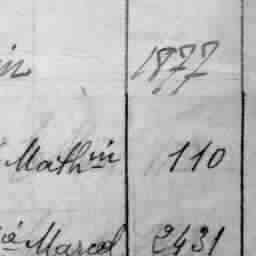 in 1877
Math in 110
é Marcel 2431